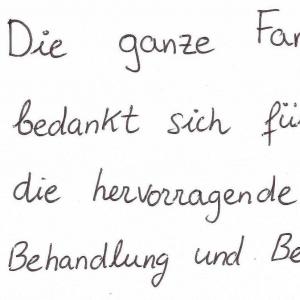 Die ganze Fam
bedankt sich für
die hervorragende
Behandlung und Be